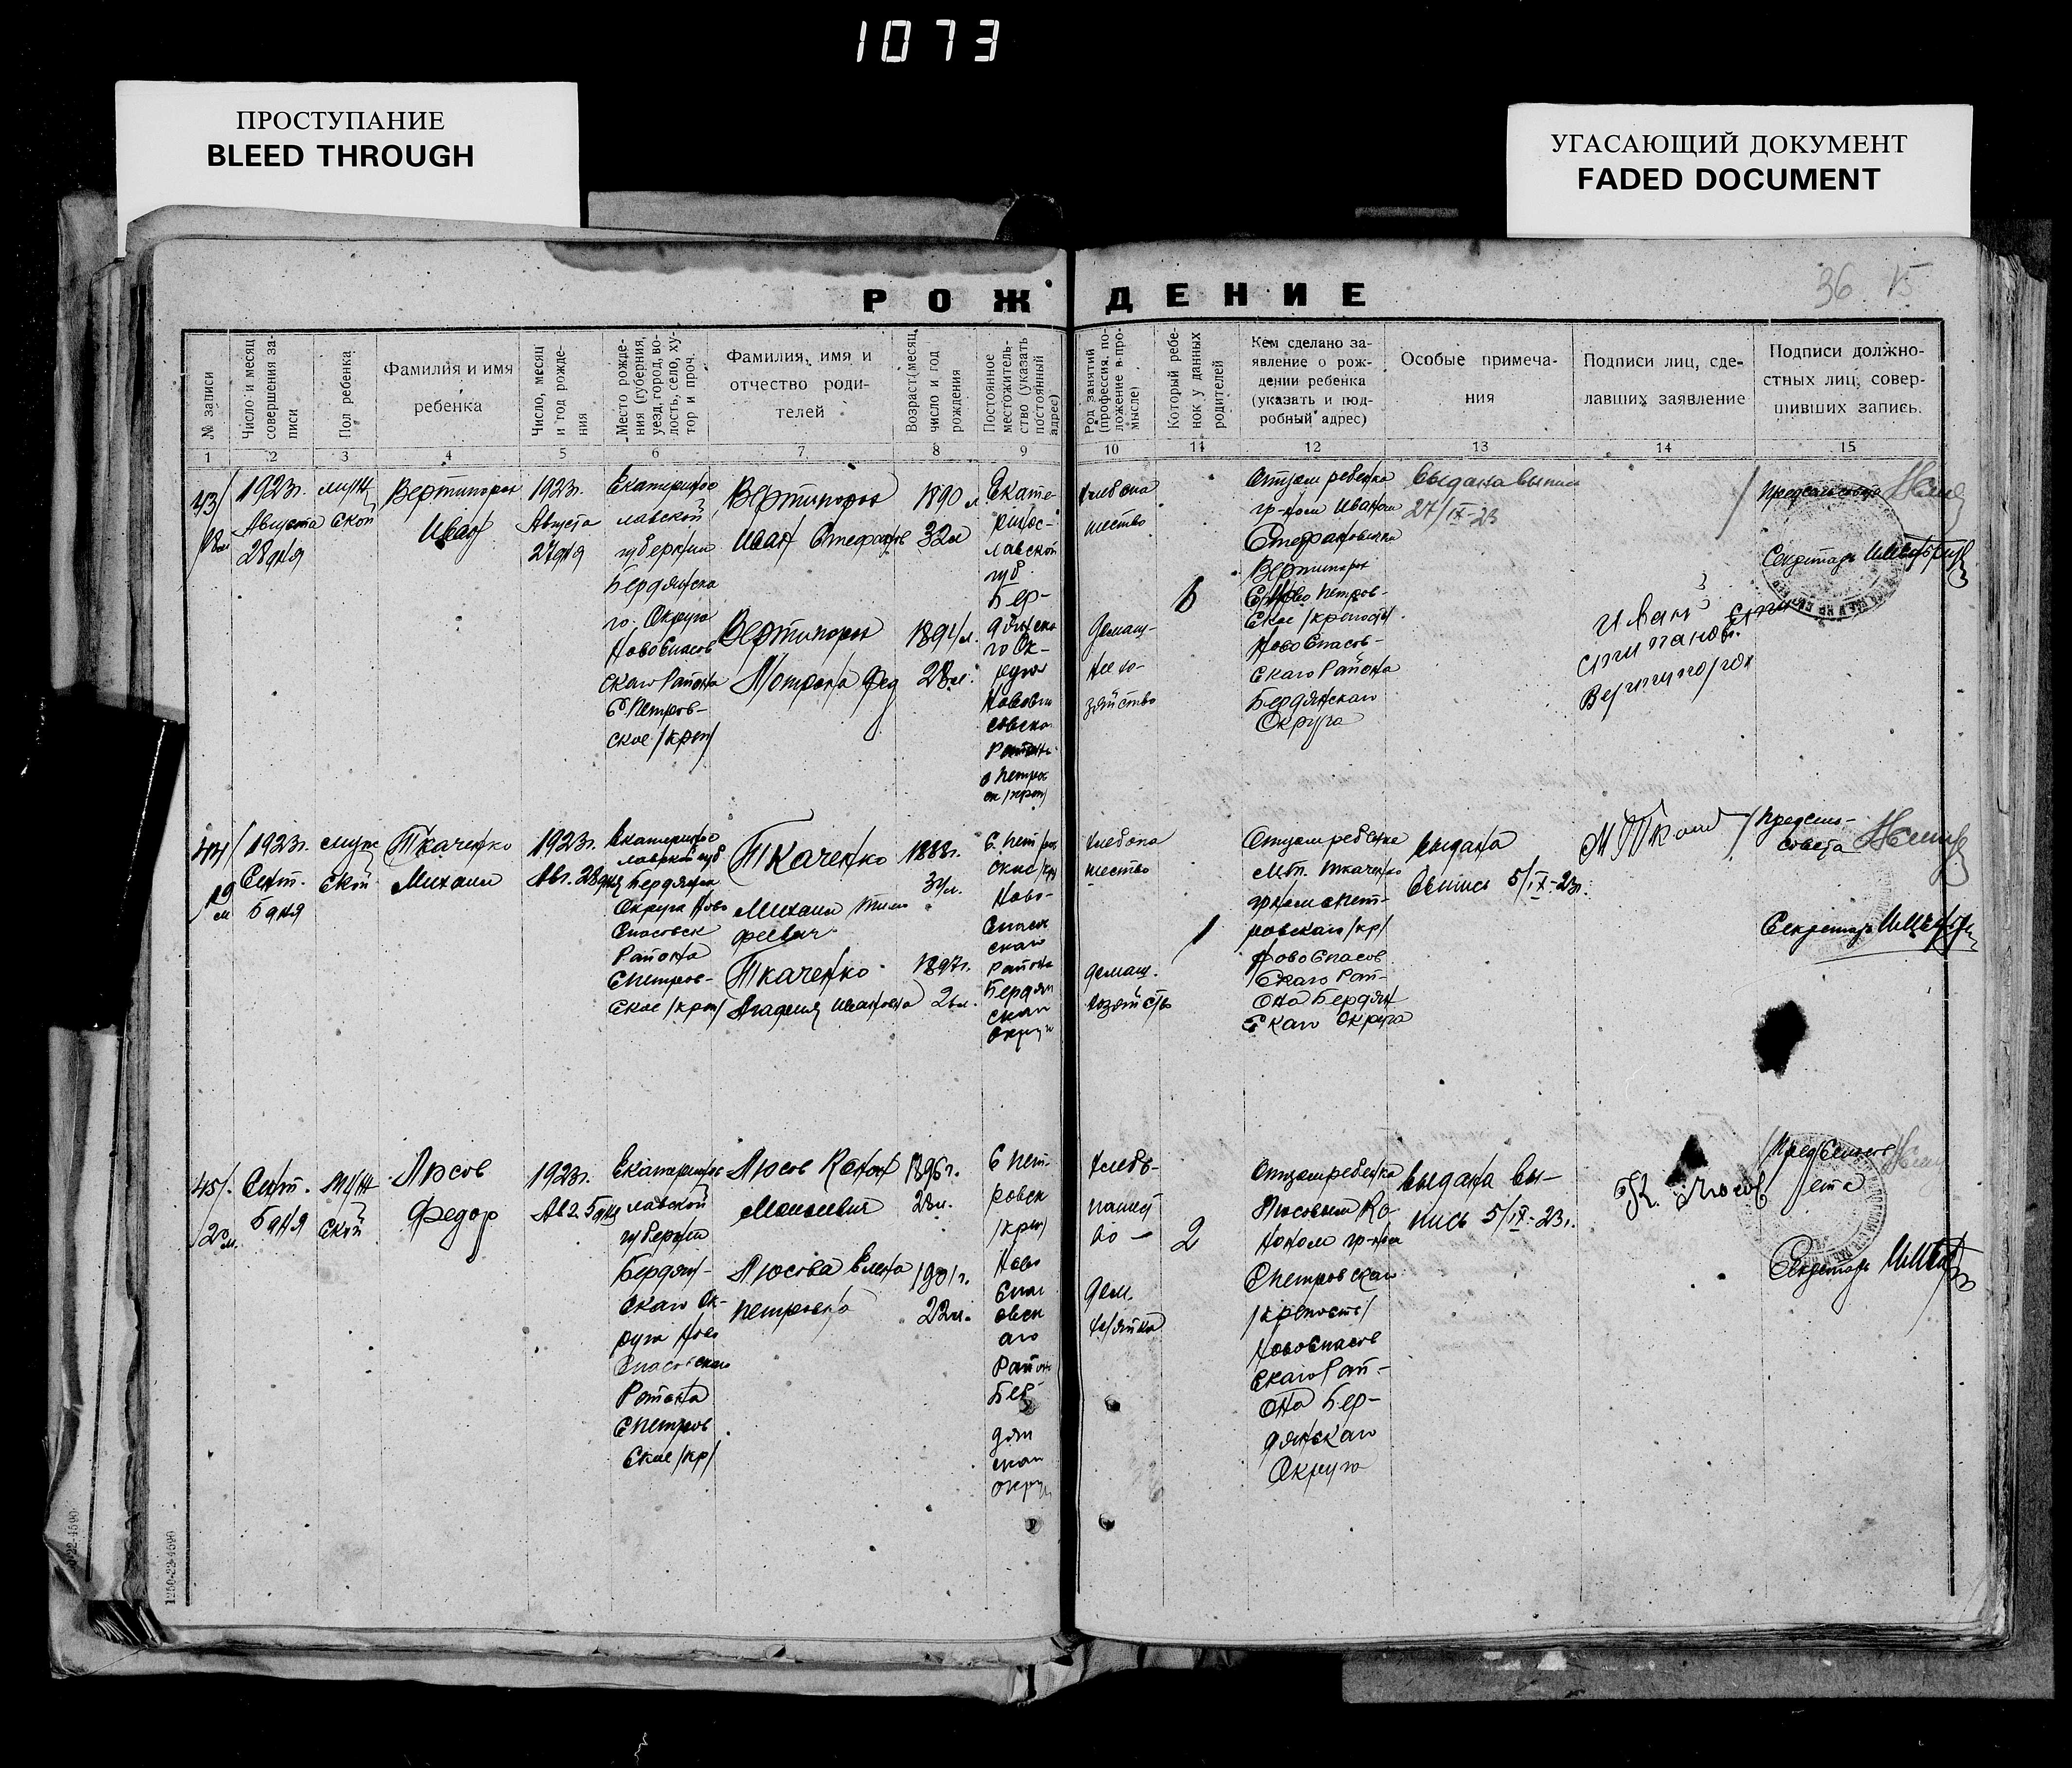 1073
ПРОСТУПАНИЕ
BLEED THROUGH
УГАСАЮЩИЙ ДОКУМЕНТ
FADED DOCUMENT
36 15
РОЖДЕНИЕ
№ записи
Число и месяц
совершения за-
писи
Пол ребенка
Фамилия и имя
ребенка
Число, месяц
и год рожде-
ния
Место рожде-
ния (губерния,
уезд, город, во-
лость, село, ху-
тор и проч.
Фамилия, имя и
отчество роди-
телей
Возраст (месяц,
число и год
рождения
Постоянное
местожитель-
ство (указать
постоянный
адрес)
Род занятий
(профессия, по-
ложение в про-
мысле)
Который ребе-
нок у данных
родителей
Кем сделано за-
явление о рож-
дении ребенка
(указать и под-
робный адрес)
Особые примеча-
ния
Подписи лиц, сде-
лавших заявление
Подписи должно-
стных лиц, совер-
шивших запись.
1 2 3 4 5 6 7 8 9 10 11 12 13 14 15
43/
18 м
1923г.
Августа
28 дня
муж
ской
Вертипорох
Иван
1923г.
Августа
27 дня
Екатеринос
лавской
губернии
Бердянска
го Округа
Новоспасов
скаго Района
с Петров-
ское /креп/
Вертипорох
Иван Стефанов
Вертипорох
Мотрона Фед
1890 г
32 л
1894 г.
28 л.
Екате-
ринос-
лавской
губ.
Бер-
дянско
го Ок-
руга
Новоспа
совско
Района
с Петров
ск /креп/
хлебопа
шество
домаш-
нее хо-
зяйство
6
Отцом ребенка
гр-ном Иваном
Стефановичем
Вертипорох
с Петров-
ское /крепость/
НовоСпасов-
скаго Района
Бердянскаго
Округа
Выдана выпис
27/IX-23
Иван
Вертипорох
Предсельсовета
Секретарь
44/
19
м
1923г.
Сент.
5 дня
муж
ской
Ткаченко
Михаил
1923г.
Авг. 28 дня
Екатеринос
лавской губ
Бердянск
Округа Ново
Спасовск
Района
с Петров-
ское /креп/
Ткаченко
Михаил Тимо
феевич
Ткаченко
Агафия Ивановна
1888г.
34 л.
1897г.
26 л.
с. Петров
Ново-
Спасов
скаго
Района
Бердян
скаго
Округа
хлебопа
шество
домаш.
хозяйство
1
Отцом ребенка
М.Т. Ткаченко
гр-ном с Пет-
ровскаго /кр/
НовоСпасов
скаго Рай-
она Бердян
скаго Округа
Выдана
выпись 5/IX-23г.
М Ткач
Предсель-
совета
Секретарь
45/.
20 м.
Сент.
5 дня
муж
ской
Люсов
Федор
1923г.
Авг. 5 дня
Екатеринос
лавской
губернии
Бердян-
скаго Ок-
руга Ново
Спасовскаго
Района
с Петров
ское /кр/
Люсов Конон
Моисеевич
Люсова Елена
Петровна
1896г.
28 л.
1901г.
22 л.
с Пет-
ровск
/креп/
Ново
Спас
овск
аго
Район
Бер
дян
скаго
округ
хлебо-
пашест
во
дом.
хозяйка
2
Отцом ребенка
Люсовым Ко-
ноном гр-ном
с Петровскаго
/крепость/
НовоСпасов
скаго Рай-
она Бер-
дянскаго
Округа
Выдана вы-
пись 5/IX-23г.
К. Люсов
ПредСельсов
ета
Секретарь
1250-22-4590